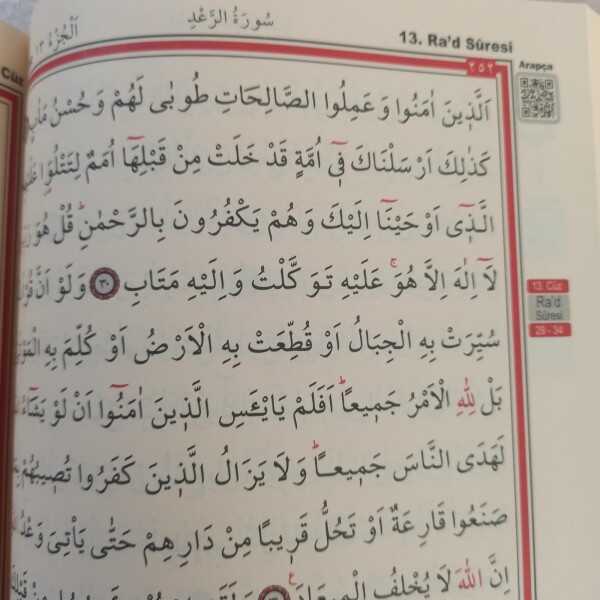 اَلْجُزْءُ ١٣
سُورَةُ الرَّعْدِ
13. Ra'd Sûresi
Cüz
٢٥٢
Arapça
اَلَّذ۪ينَ اٰمَنُوا وَعَمِلُوا الصَّالِحَاتِ طُوبٰى لَهُمْ وَحُسْنُ مَاٰبٍ
كَذٰلِكَ اَرْسَلْنَاكَ ف۪ٓي اُمَّةٍ قَدْ خَلَتْ مِنْ قَبْلِهَٓا اُمَمٌ لِتَتْلُوَ۬ا
الَّذ۪ٓي اَوْحَيْنَٓا اِلَيْكَ وَهُمْ يَكْفُرُونَ بِالرَّحْمٰنِۜ قُلْ هُوَ
لَٓا اِلٰهَ اِلَّا هُوَۚ عَلَيْهِ تَوَكَّلْتُ وَاِلَيْهِ مَتَابِ ﴿٣٠﴾ وَلَوْ اَنَّ
سُيِّرَتْ بِهِ الْجِبَالُ اَوْ قُطِّعَتْ بِهِ الْاَرْضُ اَوْ كُلِّمَ بِهِ
بَلْ لِلّٰهِ الْاَمْرُ جَم۪يعاًۜ اَفَلَمْ يَايْـَٔسِ الَّذ۪ينَ اٰمَنُٓوا اَنْ لَوْ يَشَٓاءُ
لَهَدَى النَّاسَ جَم۪يعاًۜ وَلَا يَزَالُ الَّذ۪ينَ كَفَرُوا تُص۪يبُهُمْ
صَنَعُوا قَارِعَةٌ اَوْ تَحُلُّ قَر۪يباً مِنْ دَارِهِمْ حَتّٰى يَأْتِيَ وَعْدُ
اِنَّ اللّٰهَ لَا يُخْلِفُ الْم۪يعَادَ۟
13. Cüz
Ra'd
Sûresi
29 - 34